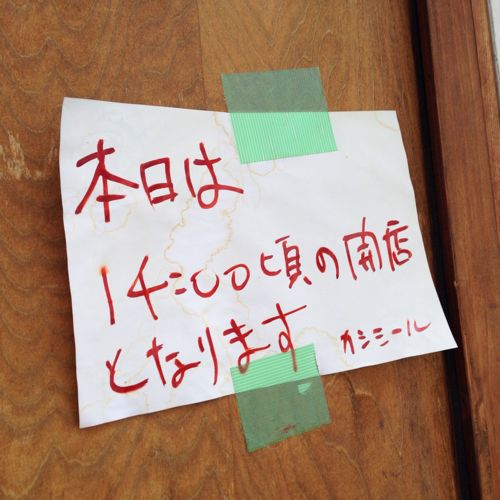 本日は
14:00頃の開店
となります
カシミール